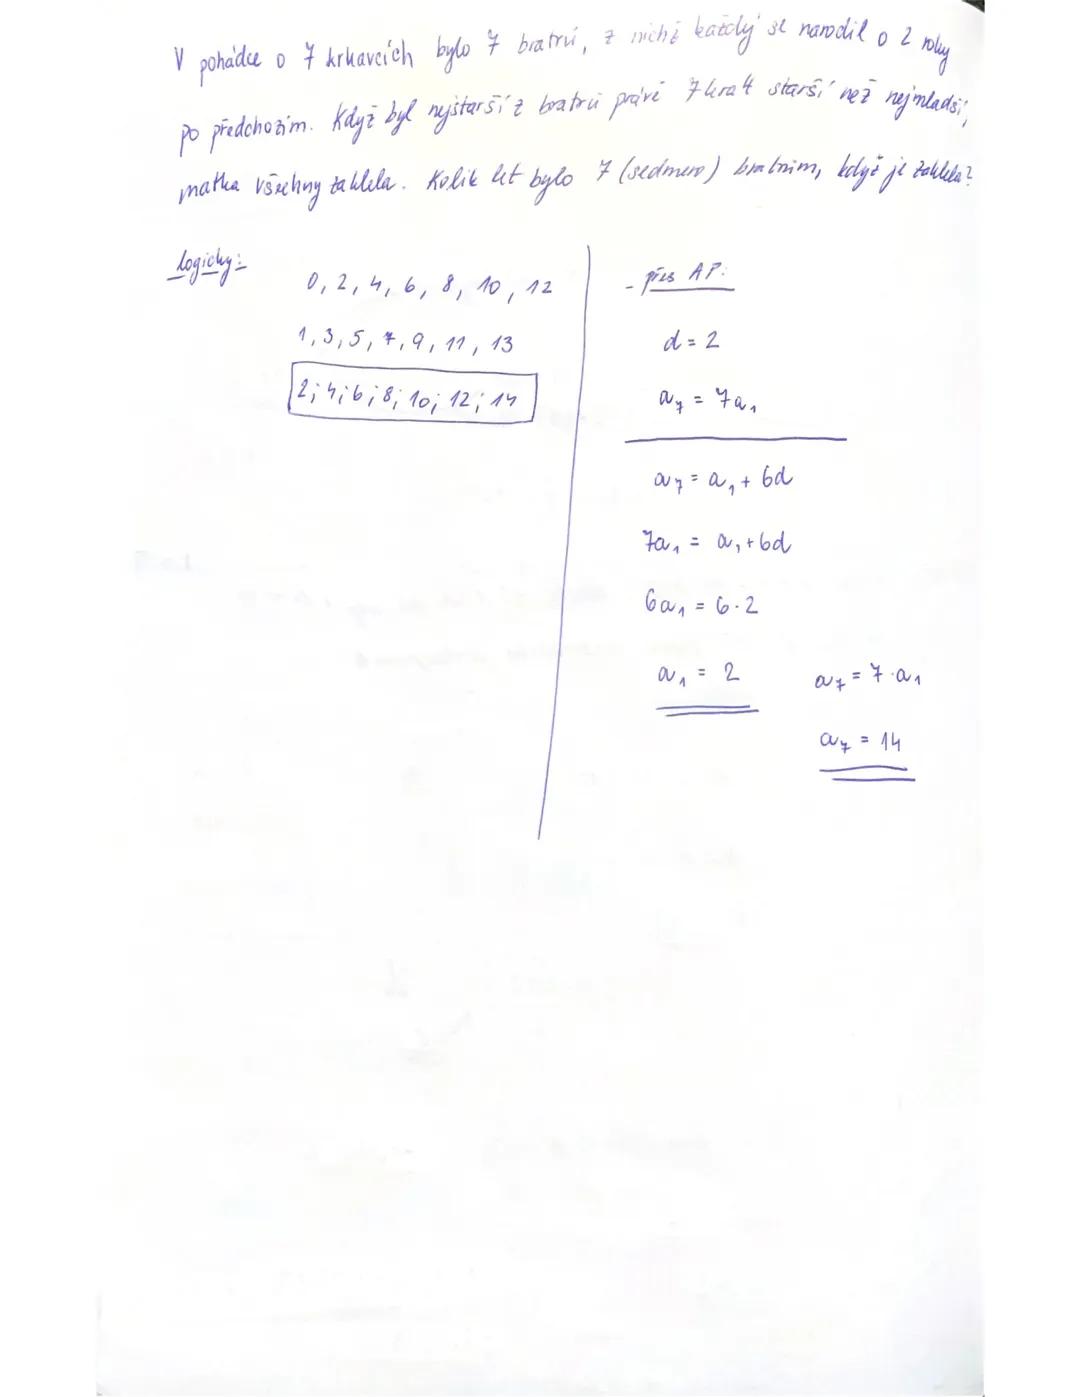 V pohádce o 7 krkavcích bylo 7 bratrů, z nichž každý se narodil o 2 roky
po předchozím. Když byl nejstarší z bratrů právě 7krát starší než nejmladší,
matka všechny zaklela. Kolik let bylo 7 (sedmero) bratrům, když je zaklela?
Logicky:
0, 2, 4, 6, 8, 10, 12
1, 3, 5, 7, 9, 11, 13
2; 4; 6; 8; 10; 12; 14
- přes AP:
d = 2
a₇ = 7a₁
a₇ = a₁ + 6d
7a₁ = a₁ + 6d
6a₁ = 6 · 2
a₁ = 2
a₇ = 7 · a₁
a₇ = 14